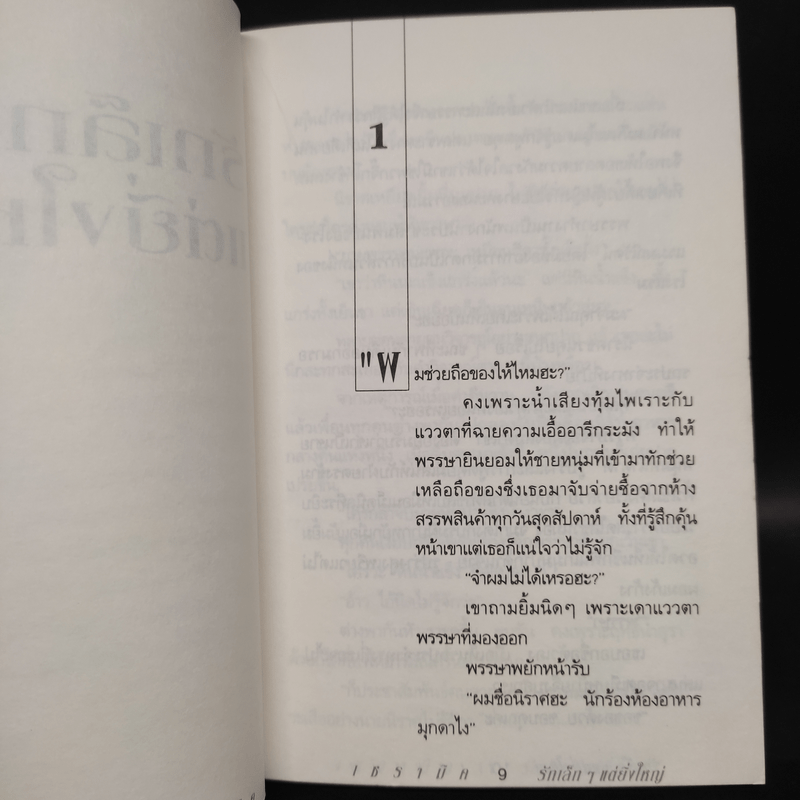 1
"ผมช่วยถือของให้ไหมฮะ?"
คงเพราะน้ำเสียงทุ้มไพเราะกับ
แววตาที่ฉายความเอื้ออารีกระมัง ทำให้
พรรษายินยอมให้ชายหนุ่มที่เข้ามาทักช่วย
เหลือถือของซึ่งเธอมาจับจ่ายซื้อจากห้าง
สรรพสินค้าทุกวันสุดสัปดาห์ ทั้งที่รู้สึกคุ้น
หน้าเขาแต่เธอก็แน่ใจว่าไม่รู้จัก
"จำผมไม่ได้เหรอฮะ?"
เขาถามยิ้มนิดๆ เพราะเดาแววตา
พรรษาที่มองออก
พรรษาพยักหน้ารับ
"ผมชื่อนิราศฮะ นักร้องห้องอาหาร
มุกดาไง"
เชรามิค 9 รักเล็ก ๆ แต่ยิ่งใหญ่